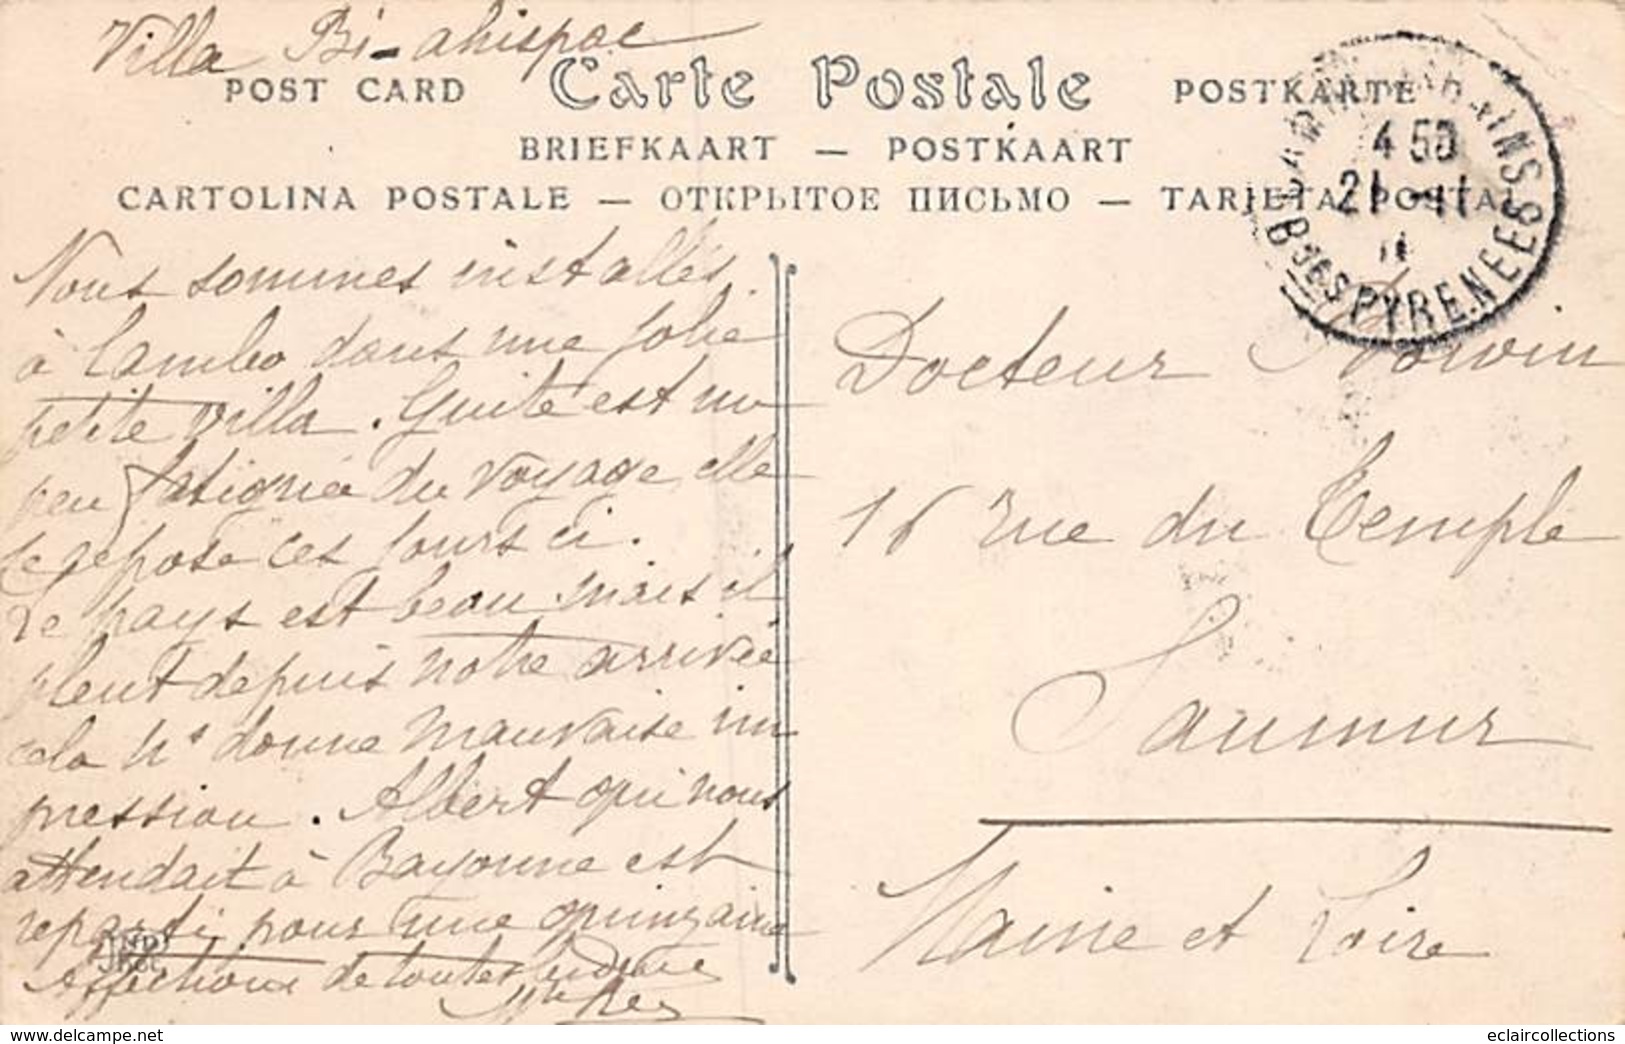 Villa Bi-ahispac
POST CARD Carte Postale POSTKARTE
BRIEFKAART — POSTKAART
CARTOLINA POSTALE — ОТКРЫТОЕ ПИСЬМО — TARJETA POSTAL
4 50
21 - 11
11
Bses PYRENEES
Nous sommes installés
à Cambo dans une jolie
petite villa. Guite est un
peu fatiguée du voyage elle
se repose ces jours ci.
Le pays est beau mais il
pleut depuis notre arrivée
cela ns donne mauvaise im
pression. Albert qui nous
attendait à Bayonne est
reparti pour une quinzaine
Affections de toutes
Docteur
16 rue du Temple
Saumur
Maine et Loire
ND
Phot
eclaircollections